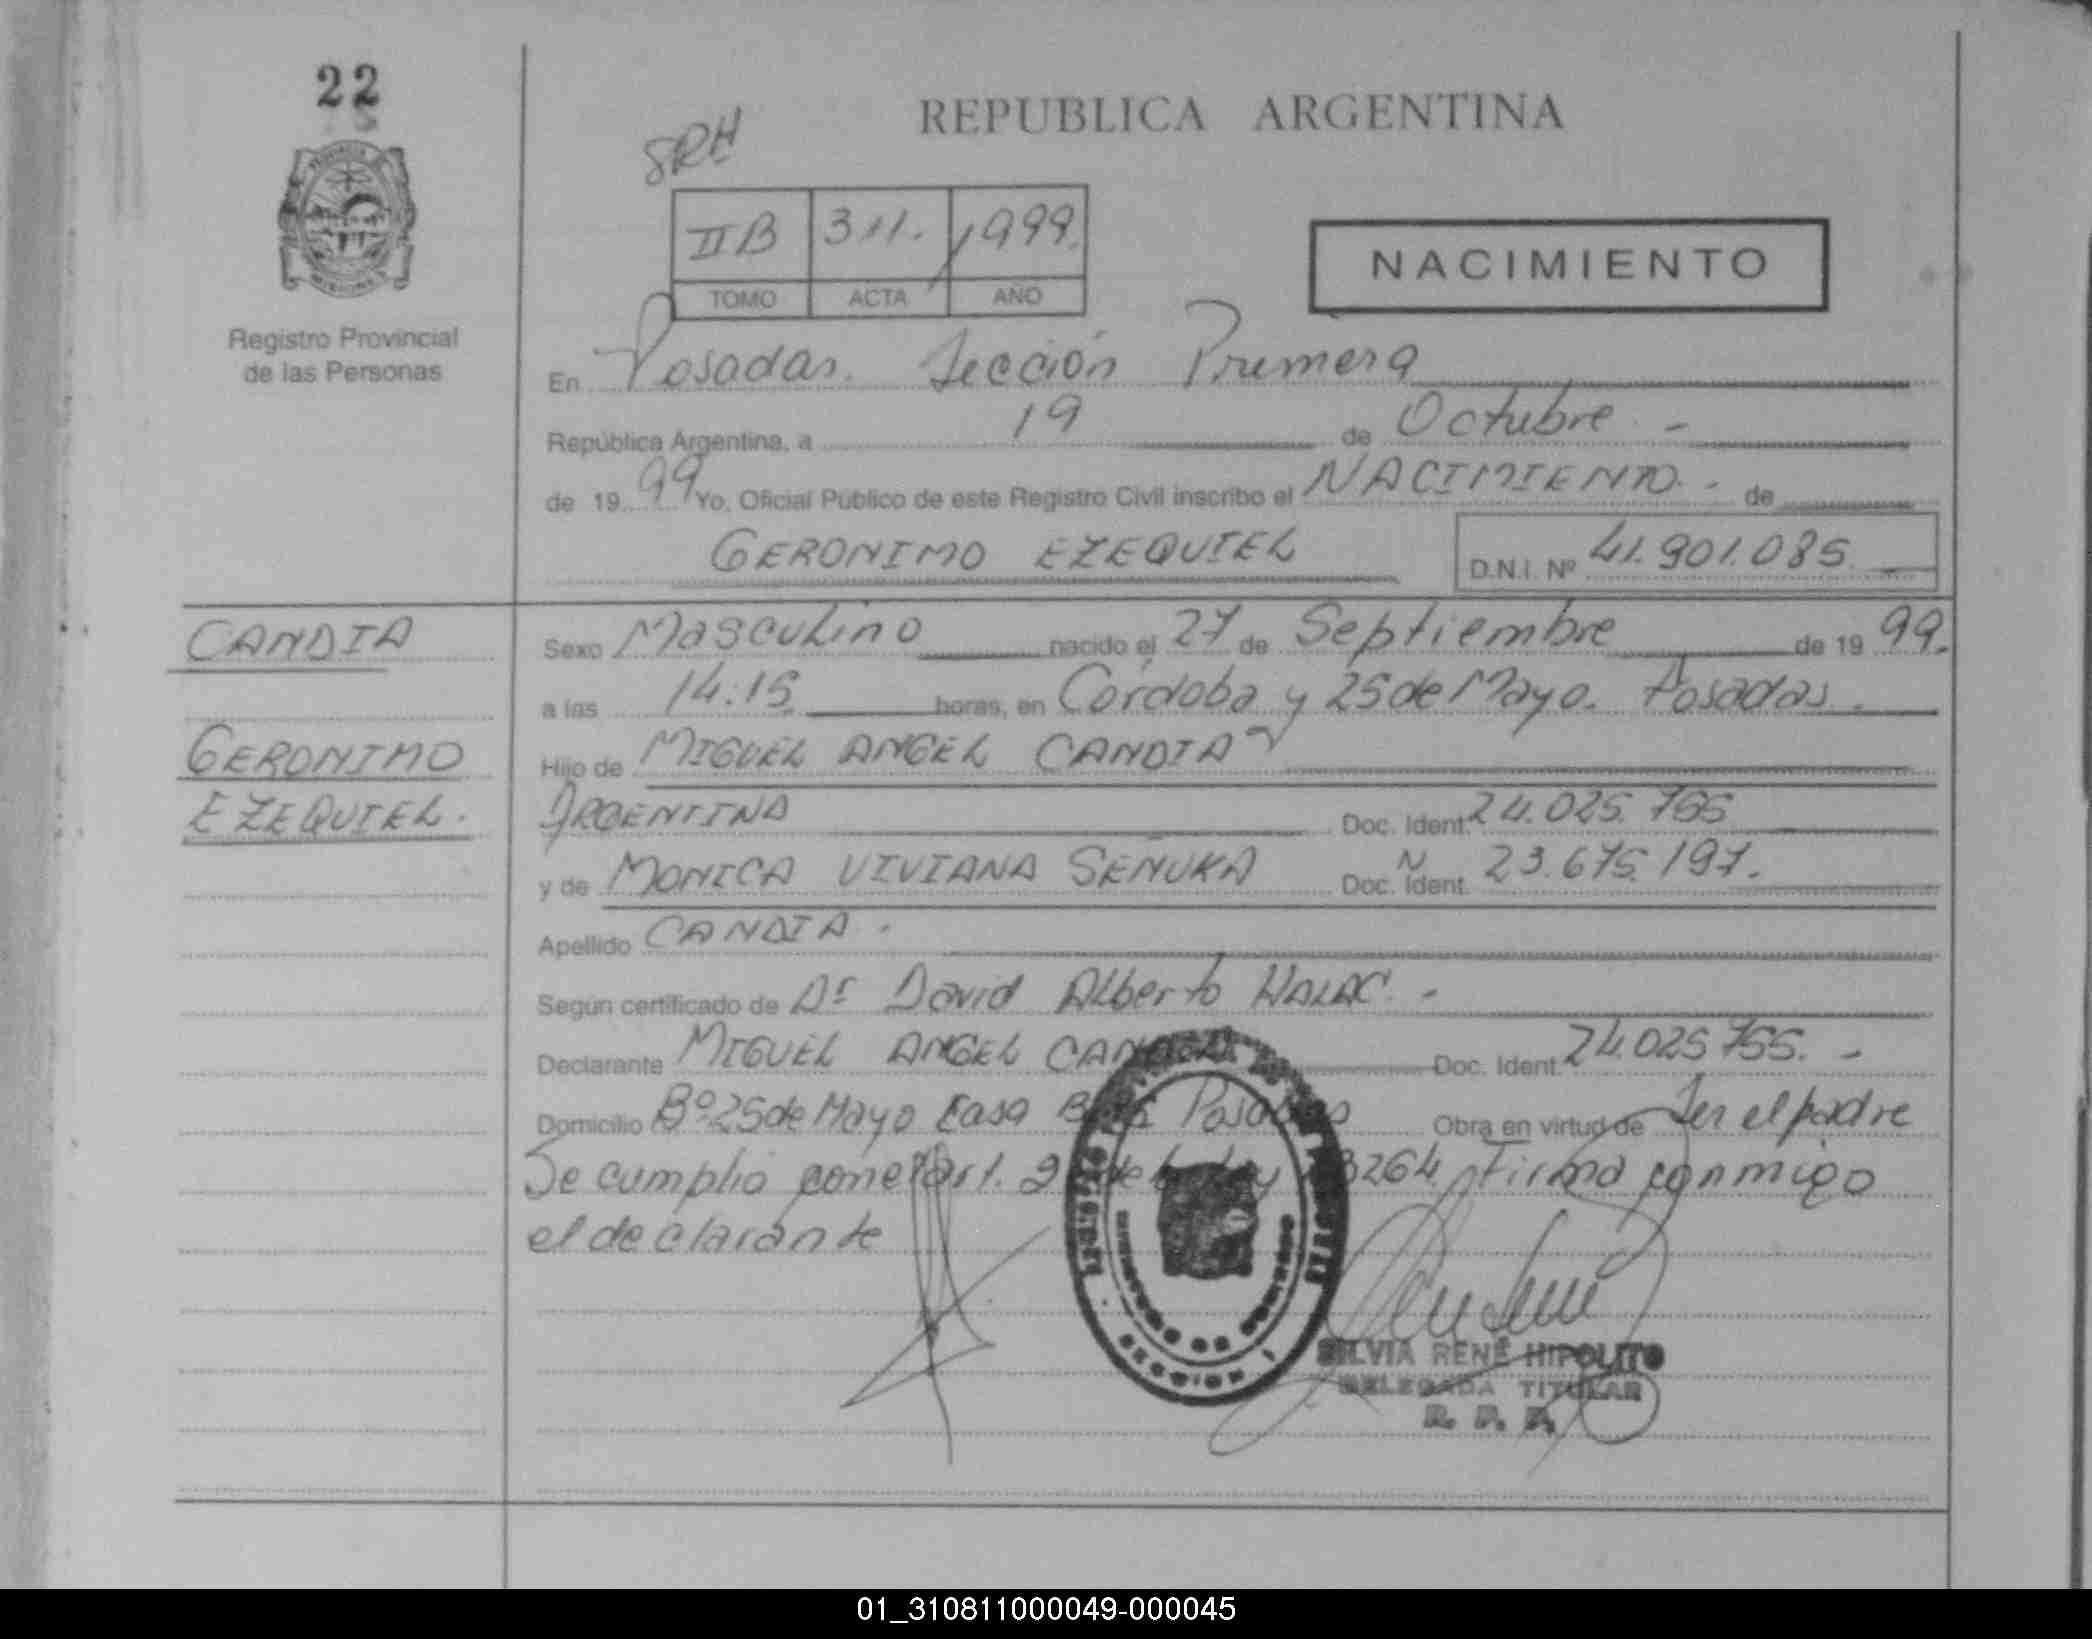 22
REPUBLICA ARGENTINA
SRH
II B 311. 1999.
TOMO ACTA AÑO
NACIMIENTO
Registro Provincial
de las Personas
En Posadas. Sección Primera
República Argentina, a 19 de Octubre -
de 1999 Yo, Oficial Público de este Registro Civil inscribo el NACIMIENTO. - de
GERONIMO EZEQUIEL D.N.I. Nº 41.901.085.
CANDIA
Sexo Masculino nacido el 27 de Septiembre de 1999.
a las 14:15 horas, en Córdoba y 25 de Mayo. Posadas.
GERONIMO
Hijo de MIGUEL ANGEL CANDIA
EZEQUIEL.
ARGENTINA Doc. Ident. 24.025.755
y de MONICA VIVIANA SEÑUKA Doc. Ident. N 23.675.197.
Apellido CANDIA.
Según certificado de Dr David Alberto HALAC. -
Declarante MIGUEL ANGEL CANDIA Doc. Ident. 24.025.755. -
Domicilio Bº 25 de Mayo Casa Posadas Obra en virtud de Ser el padre
Se cumplió con el art. de la ley 264. Firma conmigo
el declarante
SECCION 1
SILVIA RENÉ HIPOLITO
DELEGADA TITULAR
R. P. P.
01_310811000049-000045